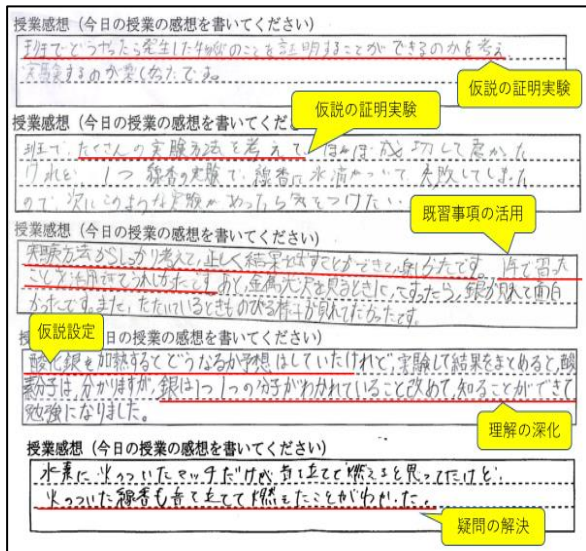 授業感想（今日の授業の感想を書いてください）
班でどうやったら発生した物質のことを証明することができるのかを考え、
実験するのが楽しかったです。
仮説の証明実験
仮説の証明実験
授業感想（今日の授業の感想を書いてくださ
班で、たくさんの実験方法を考えて、ほぼほぼ成功して良かった
けれど、1つ線香の実験で、線香に水滴がついて、失敗してしまった
ので、次にこのような実験があったら気をつけたい
既習事項の活用
授業感想（今日の授業の感想を書いてください）
実験方法からしっかり考えて、正しく結果を出すことができて良かったです。1年で習った
ことを活用できてうれしかったです。あと、金属光沢を見るときに、こすったら、銀が見れて面白
かったです。また、たたいているときものびる様子が見れてよかったです。
仮説設定
授業感想（今日の授業の感想を書いてください）
酸化銀を加熱するとどうなるか予想はしていたけれど、実験して結果をまとめると、酸
素分子は、分かりますが、銀は1つ1つの分子がわかれていること改めて、知ることができて
勉強になりました。
理解の深化
授業感想（今日の授業の感想を書いてください）
水素に火のついたマッチだけが音を立てて燃えると思ってたけど、
火のついた線香も音を立てて燃えたことがわかった。
疑問の解決